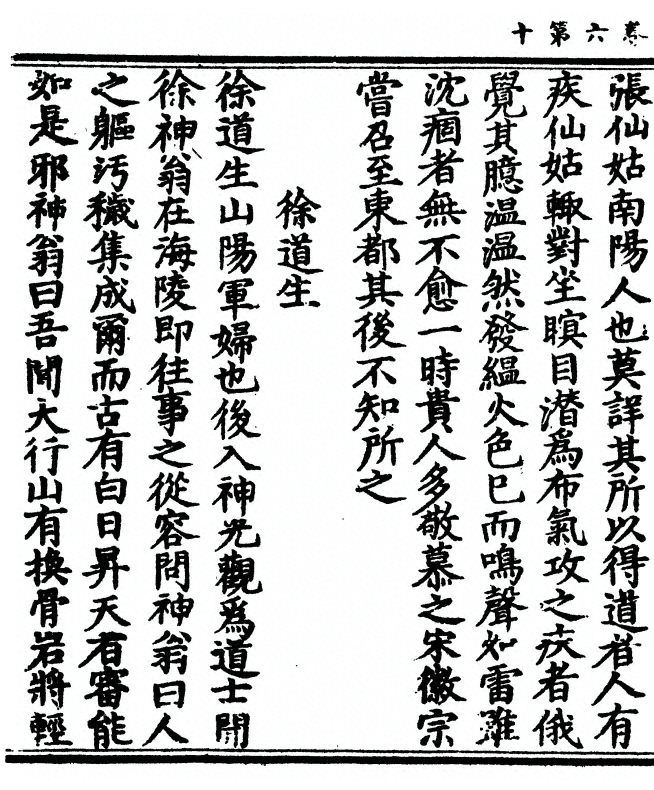 卷六第十
張仙姑南陽人也莫詳其所以得道者人有
疾仙姑輙對坐瞑目潜爲布氣攻之疾者俄
覺其臆温温然發緼火色巳而鳴聲如雷雖
沈痼者無不愈一時貴人多敬慕之宋徽宗
嘗召至東都其後不知所之
徐道生
徐道生山陽軍婦也後入神光觀爲道士聞
徐神翁在海陵即往事之從容問神翁曰人
之軀汚穢集成爾而古有白日昇天者審能
如是邪神翁曰吾聞大行山有換骨岩將輕